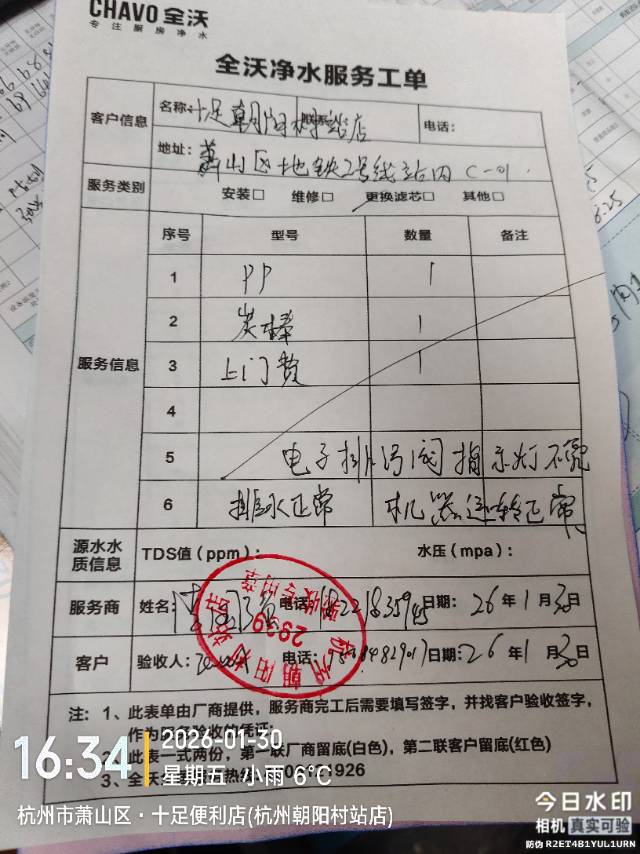 CHAVO 全沃
专注厨房净水
全沃净水服务工单
客户信息
名称: 十足朝阳村站店
电话:
地址: 萧山区地铁2号线站内 C-01
服务类别 安装□ 维修□ 更换滤芯□ 其他□
服务信息
序号 型号 数量 备注
1 PP 1
2 炭棒 1
3 上门费 1
4
5 电子排污阀指示灯不亮
6 排水正常 机器运转正常
源水水质信息 TDS值(ppm): 水压(mpa):
服务商 姓名: 电话: 日期: 26年1月30日
客户 验收人: 电话: 日期: 26年1月30日
2939
注: 1、此表单由厂商提供，服务商完工后需要填写签字，并找客户验收签字，
作为服务验收的凭证;
2、此表一式两份，第一联厂商留底(白色)，第二联客户留底(红色)
3、全沃 1926
16:34
2026-01-30
星期五 小雨 6°C
杭州市萧山区·十足便利店(杭州朝阳村站店)
今日水印
相机 真实可验
防伪 R2ET4B1YUL1URN